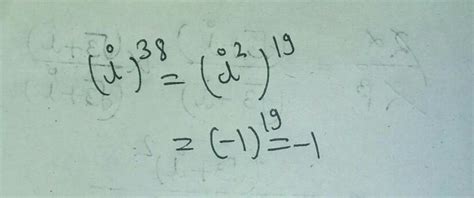 (i)^38 = (i^2)^19
= (-1)^19 = -1